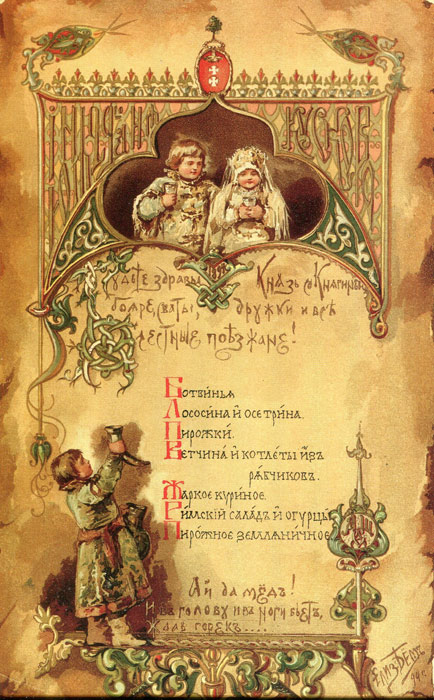 Будете здравы Князь со Княгиней
бояре, сваты, дружки и всѣ
честные поѣзжане!
Ботвинья
Лососина и осетрина.
Пирожки.
Ветчина и котлеты изъ
рябчиковъ.
Жаркое куриное.
Римскій саладъ и огурцы
Пирожное земляничное
Ай да мёдъ!
И въ голову и въ ноги бьетъ,
Жаль горекъ....
Елиз Бёмъ